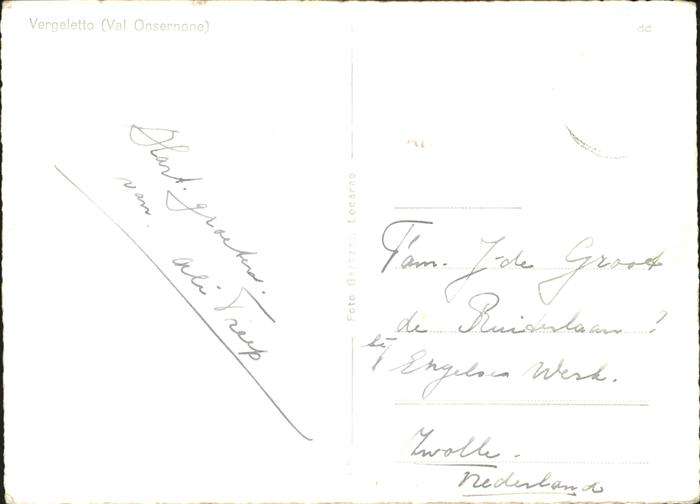 Vergeletto (Val Onsernone)
Hart. groeten
van.
Ali Treep
Foto Locarno
Fam. J. de Groot
de Ruiterlaan?
bij
Engelse Werk.
Zwolle.
Nederland